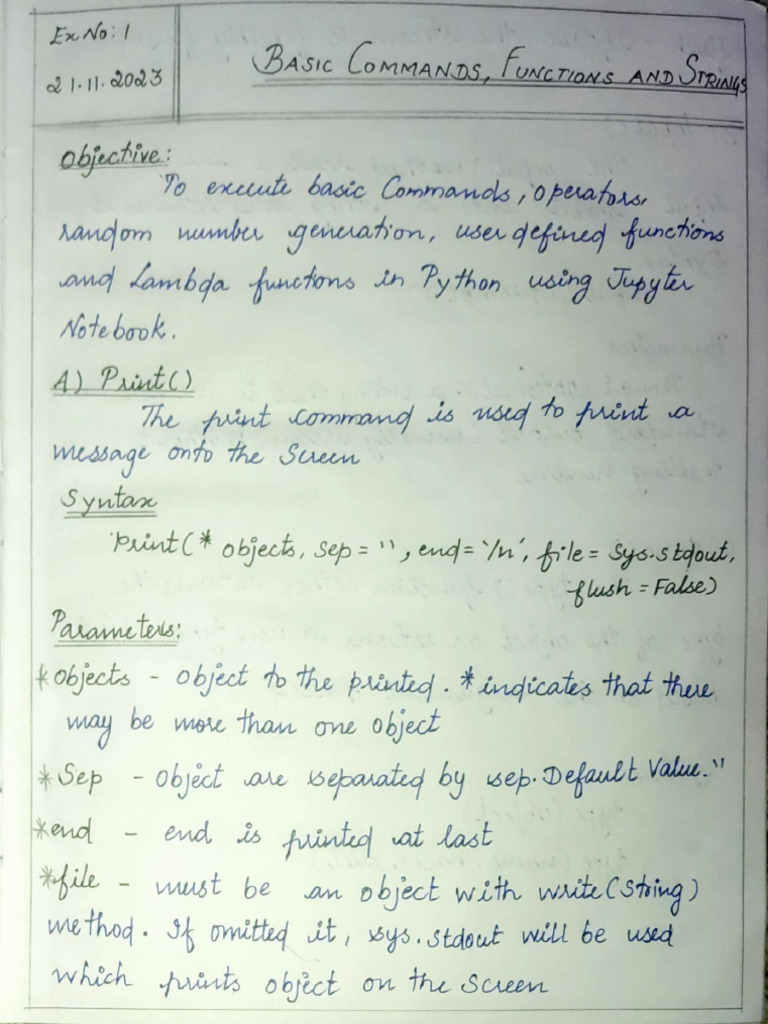 Ex No: 1
21.11.2023
BASIC COMMANDS, FUNCTIONS AND STRINGS
Objective:
To execute basic Commands, operators,
random number generation, user defined functions
and Lambda functions in Python using Jupyter
Notebook.
A) Print()
The print command is used to print a
message onto the Screen
Syntax
Print(* objects, sep = '', end = '/n', file = sys.stdout,
flush = False)
Parameters:
*objects - object to the printed. * indicates that there
may be more than one object
*Sep - object are separated by sep. Default Value. ''
*end - end is printed at last
*file - must be an object with write(String)
method. If omitted it, sys.stdout will be used
which prints object on the Screen